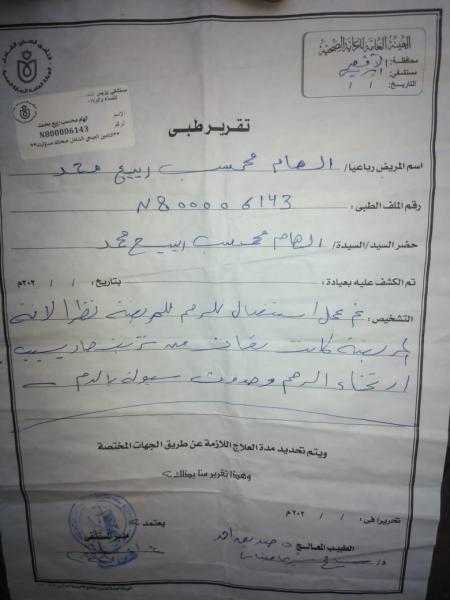 الهيئة العامة للرعاية الصحية
محافظة:
مستشفى:
التاريخ: / /
الاسم
الهام محسب ربيع محمد
N800006143
تقرير طبى
اسم المريض رباعيا/ الهام محسب ربيع محمد
رقم الملف الطبى: N800006143
حضر السيد/السيدة/ الهام محسب ربيع محمد
تم الكشف عليه بعيادة: بتاريخ: / / ٢٠٢م
التشخيص: تم عمل استئصال للرحم للمريضة نظرا لانه
المريضة كانت تعانى من نزيف حاد بسبب
ارتخاء الرحم وحدوث سيولة بالدم
ويتم تحديد مدة العلاج اللازمة عن طريق الجهات المختصة
وهذا تقرير منا بذلك
تحريرا فى: / / ٢٠٢م
يعتمد
الطبيب المعالج
مدير المستشفى